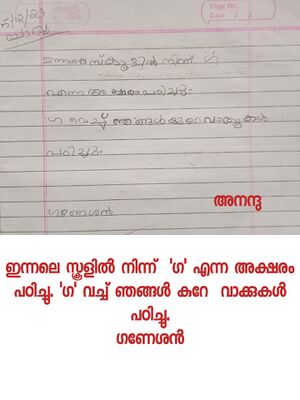 Page No.
Date / /
ഇന്നലെ സ്കൂളിൽ നിന്ന് ഗ
എന്ന അക്ഷരം പഠിച്ചു.
ഗ വെച്ച് ഞങ്ങൾ കുറേ വാക്കുകൾ
പഠിച്ചു.
ഗണേശൻ
അനന്ദു
ഇന്നലെ സ്കൂളിൽ നിന്ന് 'ഗ' എന്ന അക്ഷരം
പഠിച്ചു. 'ഗ' വച്ച് ഞങ്ങൾ കുറേ വാക്കുകൾ
പഠിച്ചു.
ഗണേശൻ